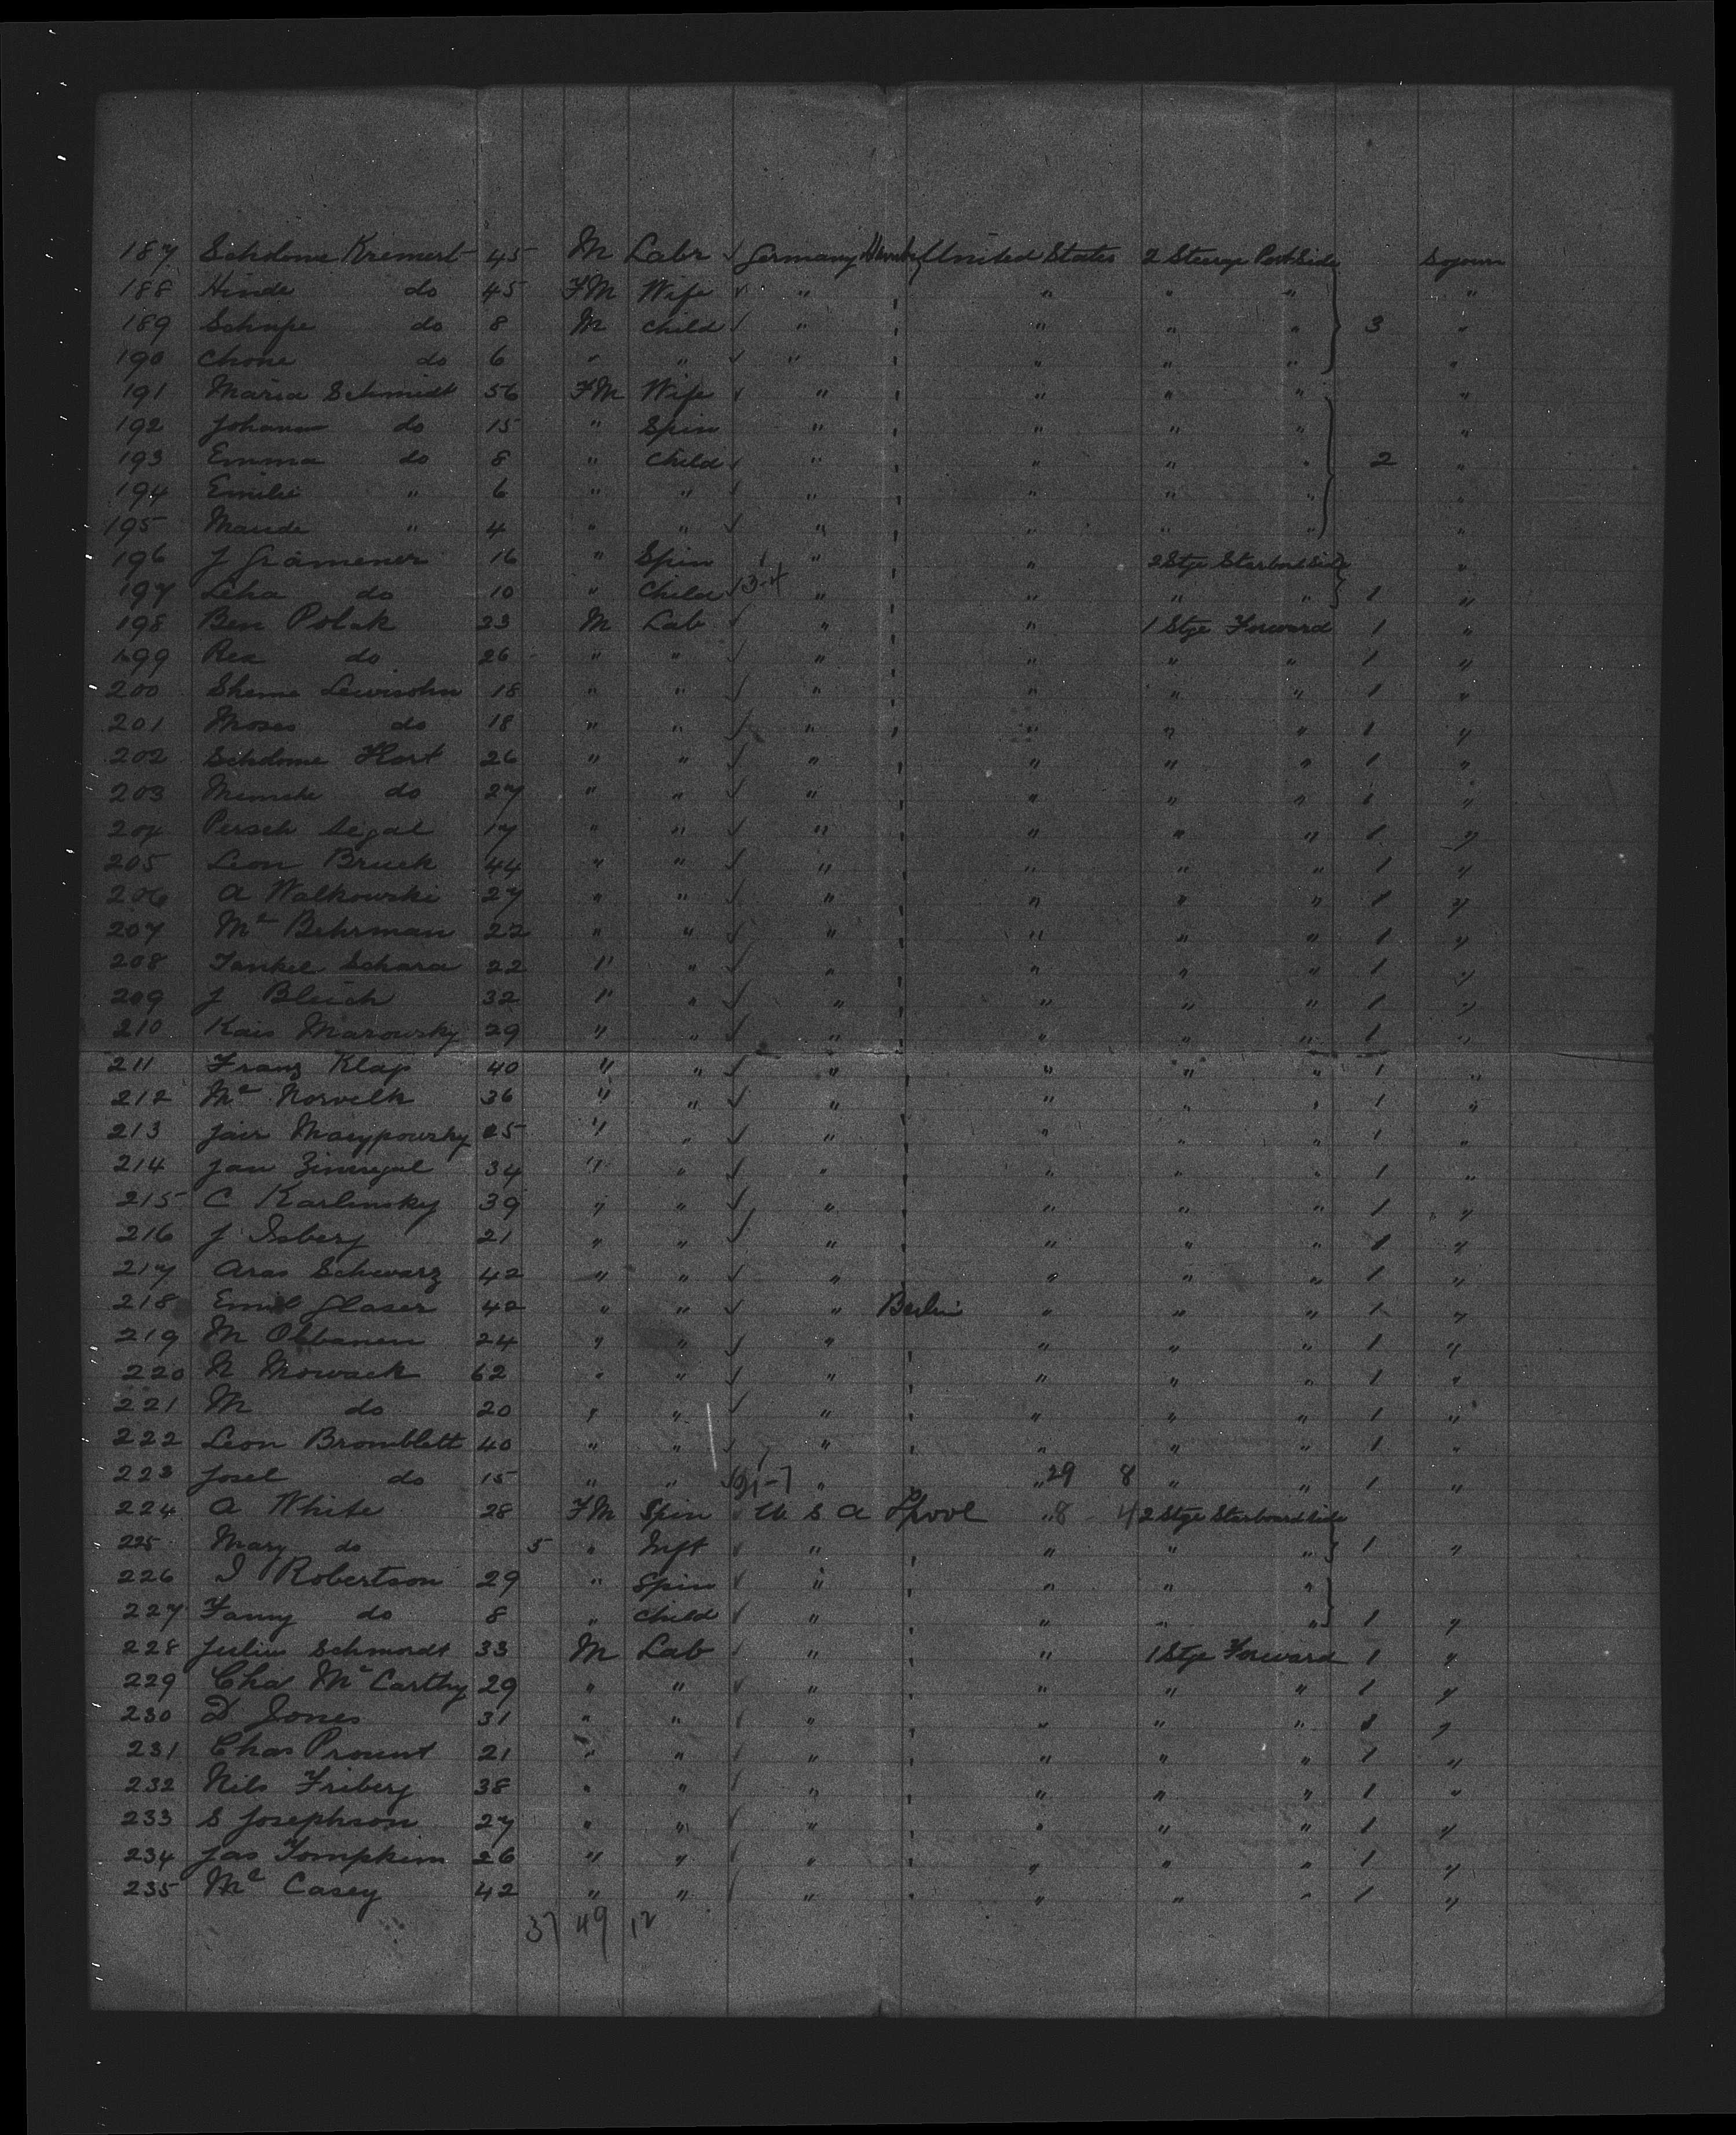 187 Schdome Kremert 45 M Labr ✓ Germany United States 2 Steerge Port Side Sojourn
188 Hinde do 45 FM Wife ✓ " " " " "
189 Schupe do 8 M Child ✓ " " " " 3 "
190 Chone do 6 " " ✓ " " " " "
191 Maria Schmidt 56 FM Wife ✓ " " " " "
192 Johanna do 15 " Spin " " " " "
193 Emma do 8 " Child ✓ " " " " 2 "
194 Emilie " 6 " " ✓ " " " " "
195 Maude " 4 " " ✓ " " " " "
196 J Gramener 16 " Spin " " 2 Stge Starbord Side "
197 Leha do 10 " Child ✓ 3-4 " " " " 1 "
198 Ben Polak 23 M Lab ✓ " " 1 Stge Forward 1 "
199 Rea do 26 " " ✓ " " " " 1 "
200 Sheme Lewisohn 18 " " ✓ " " " " 1 "
201 Moses do 18 " " ✓ " " " " 1 "
202 Schdome Hart 26 " " ✓ " " " " 1 "
203 Memeh do 27 " " ✓ " " " " 1 "
204 Persch Segal 17 " " ✓ " " " " 1 "
205 Leon Bruck 44 " " ✓ " " " " 1 "
206 A Walkowski 27 " " ✓ " " " " 1 "
207 Mc Behrman 22 " " ✓ " " " " 1 "
208 Jankel Schara 22 " " ✓ " " " " 1 "
209 J Bleich 32 " " ✓ " " " " 1 "
210 Kais Marowsky 29 " " ✓ " " " " 1 "
211 Franz Klap 40 " " ✓ " " " " 1 "
212 Mc Norvelk 36 " " ✓ " " " " 1 "
213 Jair Marypowsky 25 " " ✓ " " " " 1 "
214 Jan 34 " " ✓ " " " " 1 "
215 C Karlinsky 39 " " ✓ " " " " 1 "
216 J Isberg 21 " " ✓ " " " " 1 "
217 Aras Schwarz 42 " " ✓ " " " " 1 "
218 Emil Glaser 42 " " ✓ " Berlin " " " 1 "
219 M Olbanen 24 " " ✓ " " " " 1 "
220 N Mowack 62 " " ✓ " " " " 1 "
221 M do 20 " " ✓ " " " " 1 "
222 Leon Bromblett 40 " " ✓ " " " " 1 "
223 Josel do 15 " " ✓ " " 29 8 " " 1 "
224 A White 28 FM Spin ✓ U S A Lpool " 8 4 2 Stge Starboard Side
225 Mary do 5 " Inft ✓ " " " " 1 "
226 I Robertson 29 " Spin ✓ " " " "
227 Fanny do 8 " Child ✓ " " " " 1 "
228 Julius Schmordt 33 M Lab ✓ " " 1 Stge Forward 1 "
229 Cha Mc Carthy 29 " " ✓ " " " " 1 "
230 D Jones 31 " " ✓ " " " " 1 "
231 Chas Prount 21 " " ✓ " " " " 1 "
232 Nils Friberg 38 " " ✓ " " " " 1 "
233 S Josephson 27 " " ✓ " " " " 1 "
234 Jas Tompkim 26 " " ✓ " " " " 1 "
235 Mc Casey 42 " " ✓ " " " " 1 "
37 49 12